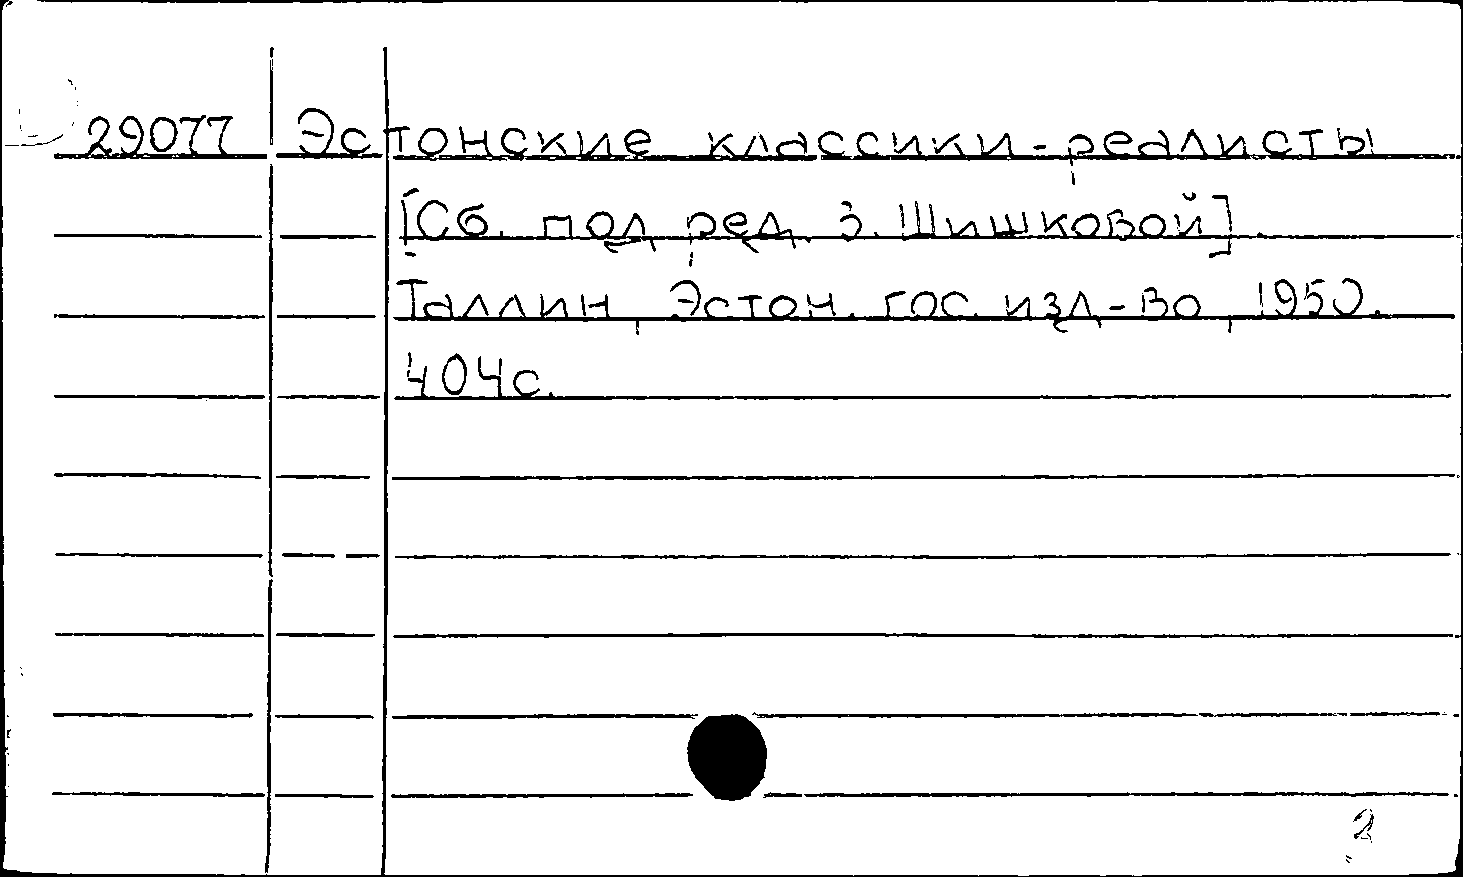 29077 Эстонские классики-реалисты
[Сб. под ред. З. Шишковой].
Таллин, Эстон. гос. изд-во, 1950.
404с.
2